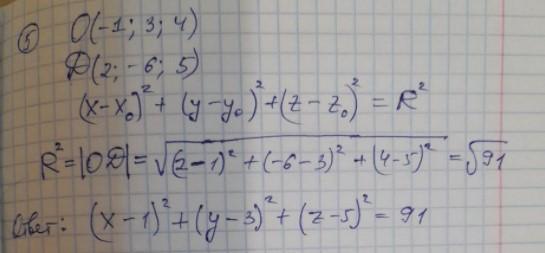 ⑤ O(-1; 3; 4)
D(2; -6; 5)
(x-x₀)² + (y-y₀)² + (z-z₀)² = R²
R² = |OD| = √((2-1)² + (-6-3)² + (4-5)²) = √91
Ответ: (x-1)² + (y-3)² + (z-5)² = 91